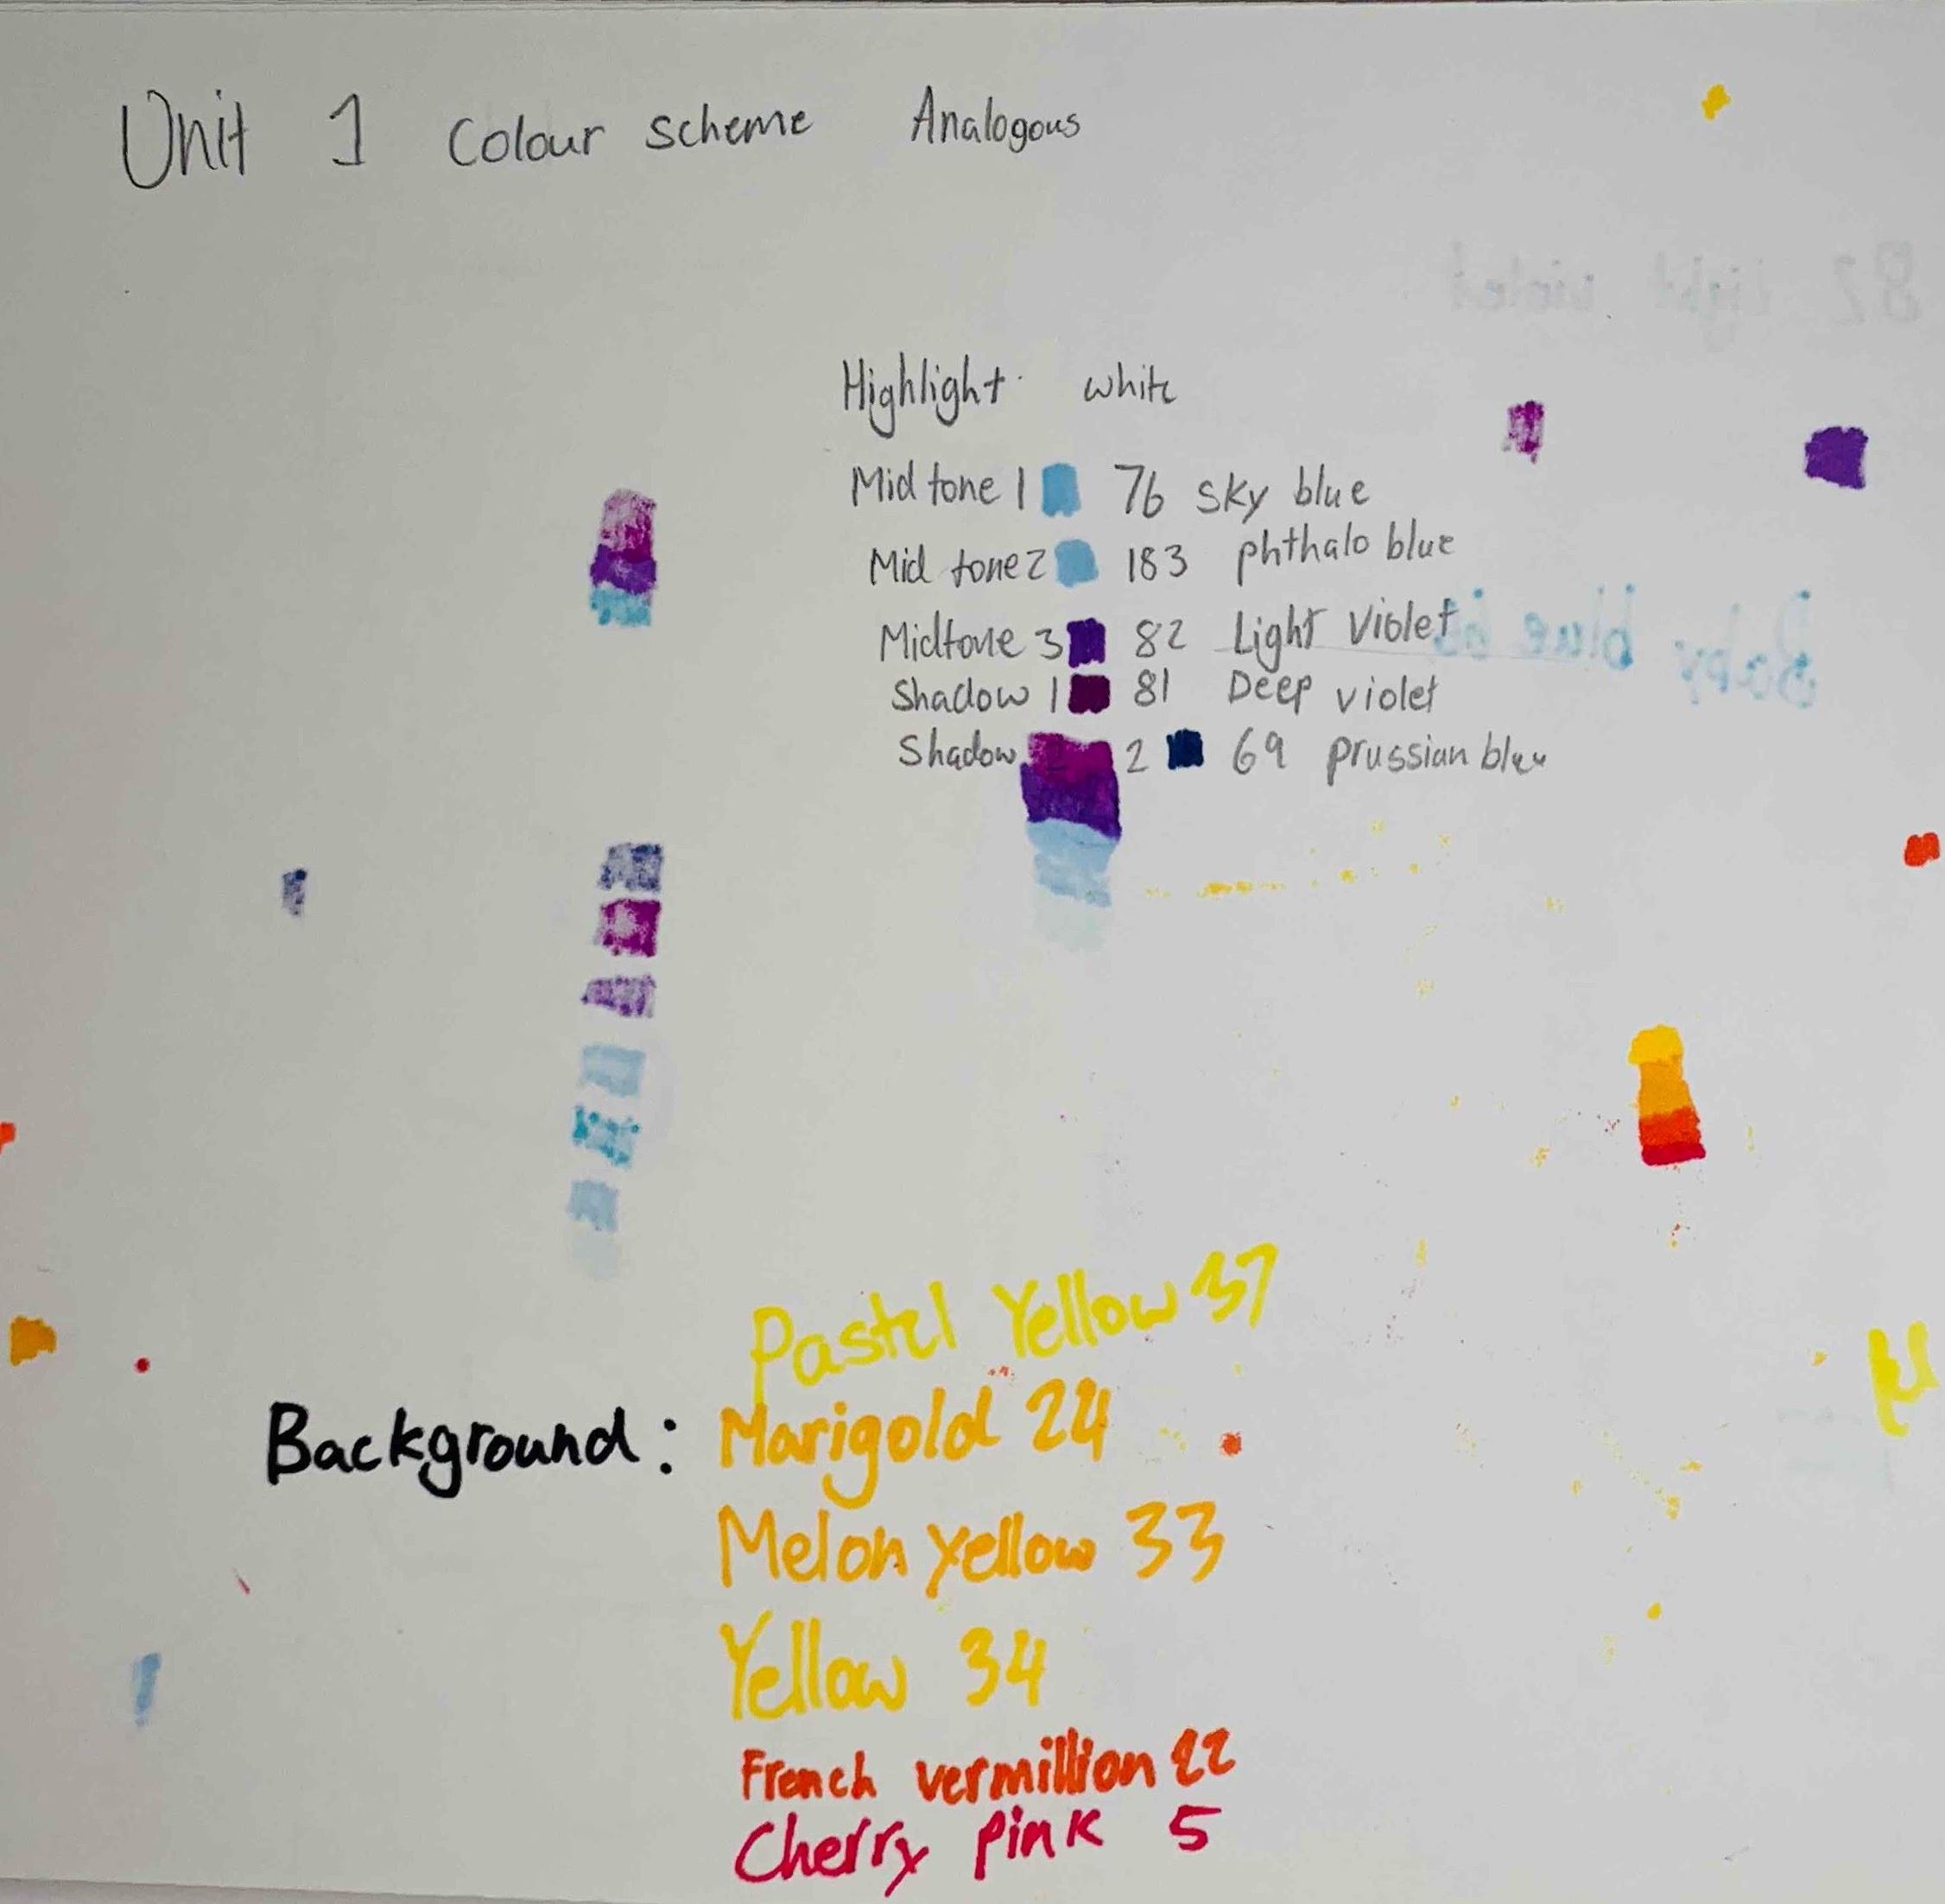 Unit 1 Colour scheme Analogous
82 light violet
Highlight white
Mid tone 1 76 sky blue
Mid tone 2 183 phthalo blue
Midtone 3 82 Light Violet
Baby blue
Shadow 1 81 Deep violet
Shadow 2 69 prussian blue
Pastel Yellow 37
Background: Marigold 24
Melon yellow 33
Yellow 34
French vermillion 22
Cherry pink 5